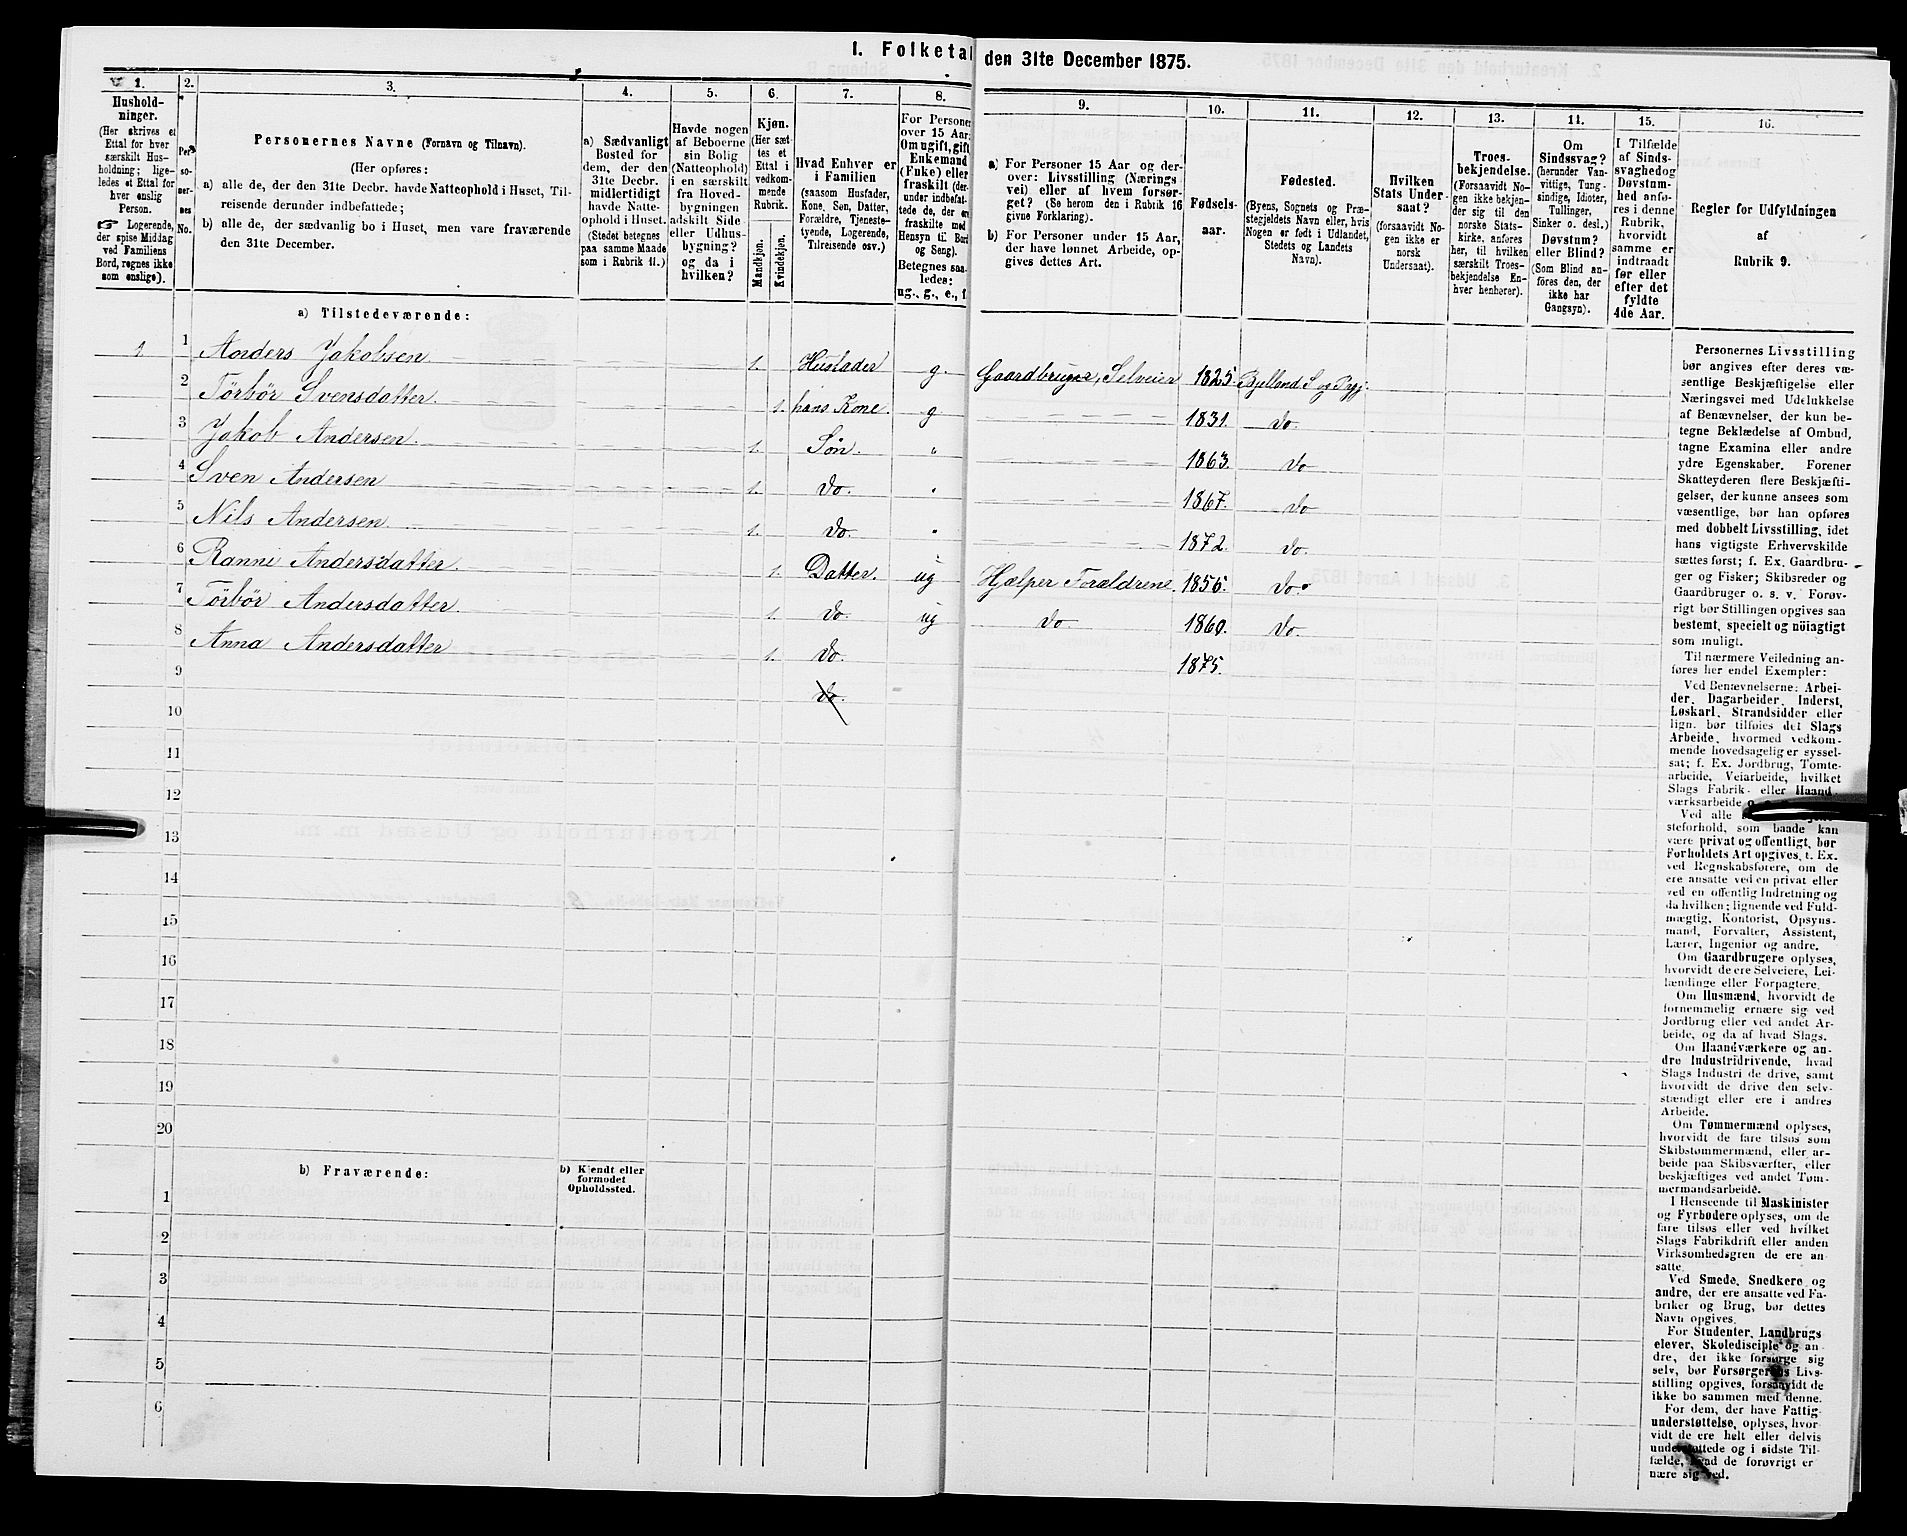 I. Folketal den 31te December 1875.
1. 2. 3. 4. 5. 6. 7. 8. 9. 10. 11. 12. 13. 14. 15. 16.
Hushold-
ninger.
(Her skrives et
Ettal for hver
særskilt Hus-
holdning; lige-
ledes et Ettal for
hver enslig
Person.
☞ Logerende,
der spise Middag
ved Familiens
Bord, regnes ikke
som enslige).
Per-
so-
ner-
nes
No.
Personernes Navne (Fornavn og Tilnavn).
(Her opføres:
a) alle de, der den 31te Decbr. havde Natteophold i Huset, Til-
reisende derunder indbefattede;
b) alle de, der sædvanlig bo i Huset, men vare fraværende
den 31te December.
a) Sædvanligt
Bosted for
dem, der den
31te Decbr.
midlertidigt
havde Natte-
ophold i Huset.
(Stedet betegnes
paa samme Maade
som i Rubrik 11.)
Havde nogen
af Beboerne
sin Bolig
(Natteophold)
i en særskilt
fra Hoved-
bygningen
adskilt Side-
eller Udhus-
bygning?
og da i
hvilken?
Kjøn.
(Her sæt-
tes et
Ettal i
vedkom-
mende
Rubrik.
Mandkjøn.
Kvindekjøn.
Hvad Enhver er
i Familien
(saasom Husfader,
Kone, Søn, Datter,
Forældre, Tjeneste-
tyende, Logerende,
Tilreisende osv.)
For Personer
over 15 Aar:
Om ugift, gift,
Enkemand
(Enke) eller
fraskilt (der-
under indbefat-
tede de, der er
fraskilte med
Hensyn til Bord
og Seng).
Betegnes saa-
ledes:
ug., g., e., f.
a) For Personer 15 Aar og der-
over: Livsstilling (Nærings
vei) eller af hvem forsør-
get? (Se herom den i Rubrik 16
givne Forklaring).
b) For Personer under 15 Aar,
der have lønnet Arbeide, op-
gives dettes Art.
Fødsels-
aar.
Fødested.
(Byens, Sognets og Præ-
stegjeldets Navn eller, hvis
Nogen er født i Udlandet,
Stedets og Landets
Navn).
Hvilken
Stats Under-
saat?
(forsaavidt No-
gen ikke er
norsk
Undersaat).
Troes-
bekjendelse.
(Forsaavidt No-
gen ikke bekjen-
der sig til den
norske Stats-
kirke, anføres
her, til hvilken
særskilt Troes-
bekjendelse En-
hver henhører).
Om
Sindssvag?
(herunder Van-
vittige, Tung-
sindige, Idioter,
Tullinger,
Sinker o. desl.)
Døvstum?
eller Blind?
(Som Blind an-
føres den, der
ikke har
Gangsyn).
I Tilfælde
af Sinds-
svaghed og
Døvstum-
hed anfø-
res i denne
Rubrik,
hvorvidt
samme er
indtraadt
før eller
efter det
fyldte
4de Aar.
Regler for Udfyldningen
af
Rubrik 9.
a) Tilstedeværende:
1 1 Anders Jakobsen 1. Husfader g. Gaardbruger, Selveier 1825.
2 Törbör Svensdatter 1. hans Kone g 1831. do.
3 Jakob Andersen 1. Søn. " 1863. do
4 Sven Andersen 1. do. " 1867. do
5 Nils Andersen 1. do. " 1872. do.
6 Ranni Andersdatter 1. Datter. ug Hjælper Forældrene 1856. do.
7 Törbör Andersdatter 1. do. ug do. 1860. do.
8 Anna Andersdatter 1. do. 1875.
9 do.
10
11
12
13
14
15
16
17
18
19
20
b) Fraværende:
b) Kjendt eller
formodet
Opholdssted.
1
2
3
4
5
6
Personernes Livsstilling
bør angives efter deres væ-
sentlige Beskjæftigelse eller
Næringsvei med Udelukkelse
af Benævnelser, der kun be-
tegne Beklædelse af Ombud,
tagne Examina eller andre
ydre Egenskaber. Forener
Skatteyderen flere Beskjæfti-
gelser, der kunne ansees som
væsentlige, bør han opføres
med dobbelt Livsstilling, idet
hans vigtigste Erhvervskilde
sættes først; f. Ex. Gaardbru-
ger og Fisker; Skibsreder og
Gaardbruger o. s. v. Forøv-
rigt bør Stillingen opgives saa
bestemt, specielt og nöiagtigt
som muligt.
Til nærmere Veiledning an-
føres her endel Exempler:
Ved Benævnelserne: Arbei-
der, Dagarbeider, Inderst,
Løskarl, Strandsidder eller
lign. bør tilføies det Slags
Arbeide, hvormed vedkom-
mende hovedsagelig er syssel-
sat; f. Ex. Jordbrug, Tomte-
arbeide, Veiarbeide, hvilket
Slags Fabrik- eller Haand-
værksarbeide
Ved alle
steforhold, som baade kan
være privat og offentligt, bør
Forholdets Art opgives, t. Ex.
ved Regnskabsførere, om de
ere ansatte ved en privat eller
ved en offentlig Indretning og
da hvilken; lignende ved Fuld-
mægtig, Kontorist, Opsyns-
mand, Forvalter, Assistent,
Lærer, Ingeniør og andre.
Om Gaardbrugere oplyses,
hvorvidt de ere Selveiere, Lei-
lændinge eller Forpagtere.
Om Husmænd, hvorvidt de
fornemmelig ernære sig ved
Jordbrug eller ved andet Ar-
beide, og da af hvad Slags.
Om Haandværkere og an-
dre Industridrivende, hvad
Slags Industri de drive, samt
hvorvidt de drive den selv-
stændigt eller ere i andres
Arbeide.
Om Tømmermænd oplyses,
hvorvidt de fare tilsøs som
Skibstømmermænd, eller ar-
beide paa Skibsværfter, eller
beskjæftiges ved andet Tøm-
mermandsarbeide.
I Henseende til Maskinister
og Fyrbødere oplyses, om de
fare tilsøs eller ved hvilket
Slags Fabrikdrift eller anden
Virksomhedsgren de ere an-
satte.
Ved Smede, Snedkere og
andre, der ere ansatte ved Fa-
briker og Brug, bør dettes
Navn opgives.
For Studenter, Landbrugs
elever, Skoledisciple og an-
dre, der ikke forsørge sig
selv, bør Forsørgerens Livs-
stilling opgives, forsaavidt de
ikke bo sammen med denne.
For dem, der have Fattig-
understøttelse, oplyses, hvor-
vidt de ere helt eller delvis
understøttede og i sidste Til-
fælde, hvad de forøvrigt er
nære sig ved.